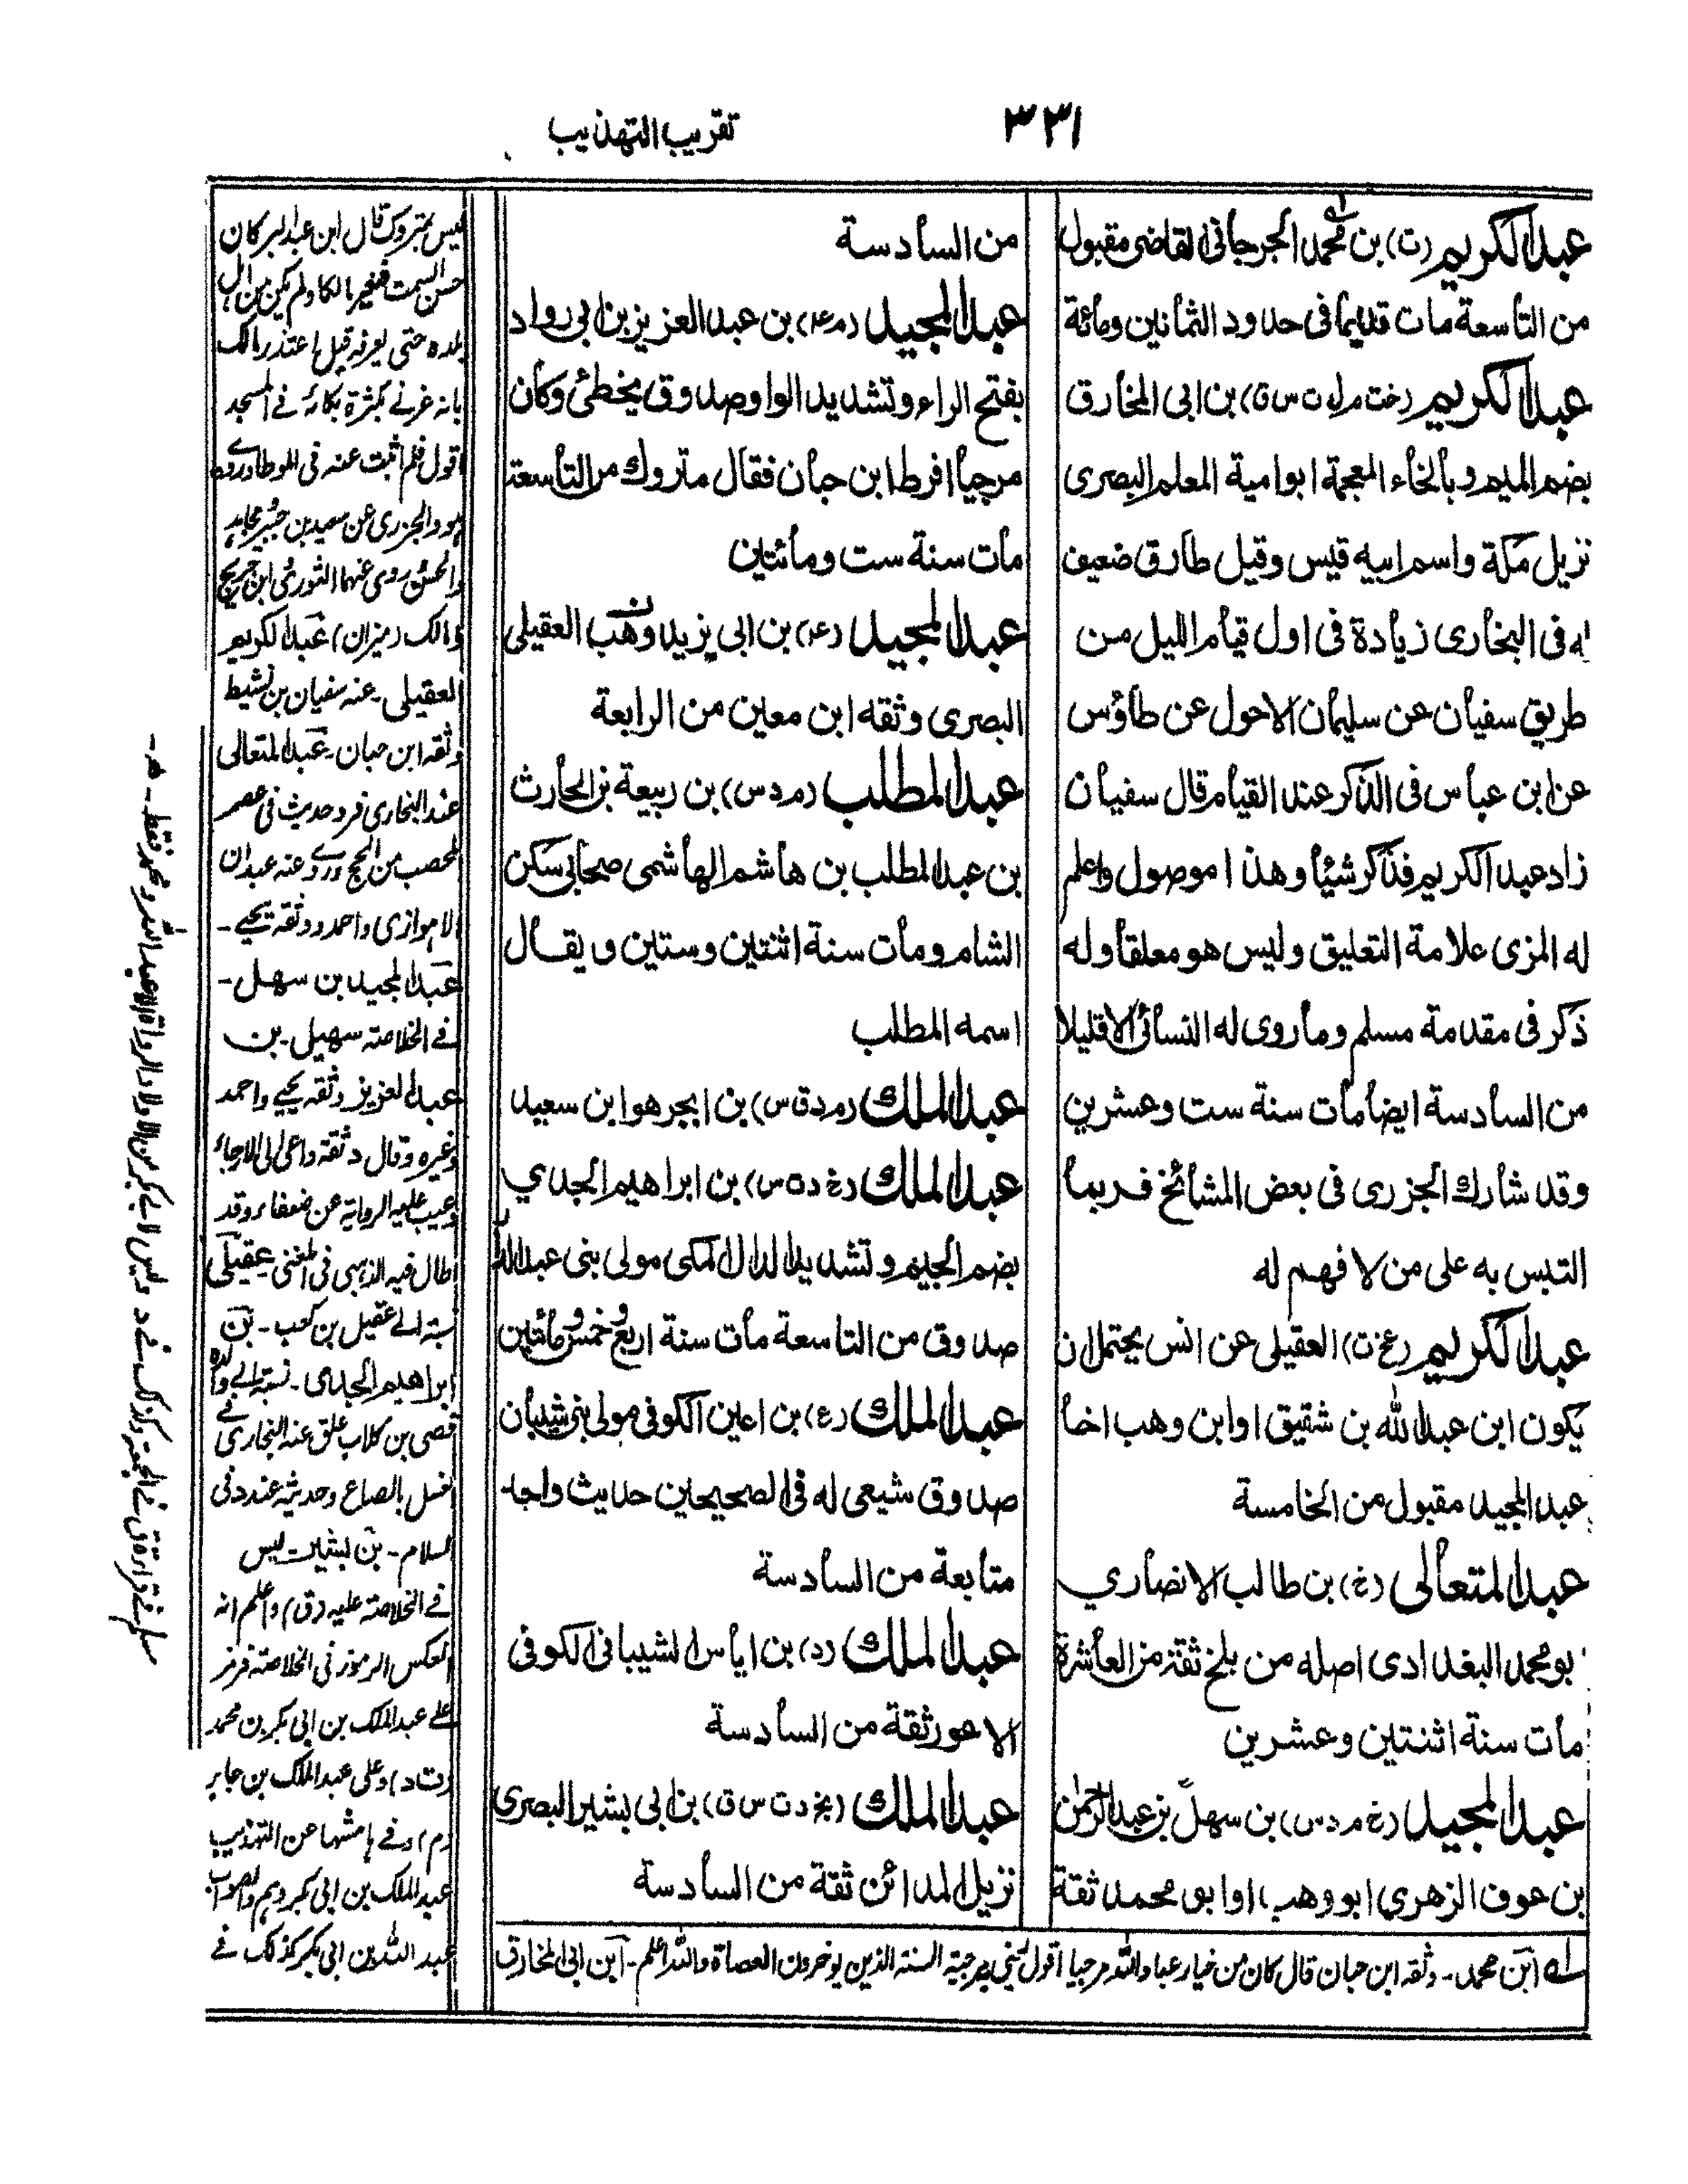 ٣٣١
تقريب التهذيب
عبد الكريم (ت) بن محمد الجرجانى القاضى مقبول
من التاسعة مات قديما فى حدود الثمانين ومائة
عبد الكريم (خت م ل ت س ق) بن ابى المخارق
بضم الميم وبالخاء المعجمة ابو امية المعلم البصرى
نزيل مكة واسم ابيه قيس وقيل طارق ضعيف
له فى البخارى زيادة فى اول قيام الليل من
طريق سفيان عن سليمان الاحول عن طاؤس
عن ابن عباس فى الذكر عند القيام قال سفيان
زاد عبد الكريم فذكر شيئا وهذا موصول واعلم
له المزى علامة التعليق وليس هو معلقا وله
ذكر فى مقدمة مسلم وما روى له النسائى الا قليلا
من السادسة ايضا مات سنة ست وعشرين
وقد شارك الجزرى فى بعض المشائخ فربما
التبس به على من لا فهم له
عبد الكريم (عخ ت) العقيلى عن انس يحتمل ان
يكون ابن عبد الله بن شقيق او ابن وهب اخا
عبد المجيد مقبول من الخامسة
عبد المتعالى (خ) بن طالب الانصاري
بو محمد البغدادى اصله من بلخ ثقة من العاشرة
مات سنة اثنتين وعشرين
عبد المجيد (خ م د س) بن سهل بن عبد الرحمن
بن عوف الزهري ابو وهب او ابو محمد ثقة
من السادسة
عبد المجيد (م عه) بن عبد العزيز بن ابى رواد
بفتح الراء وتشديد الواو صدوق يخطئ وكان
مرجيا افرط ابن حبان فقال متروك من التاسعة
مات سنة ست ومائتين
عبد المجيد (عه) بن ابى يزيد وهب العقيلى
البصرى وثقه ابن معين من الرابعة
عبد المطلب (م د س) بن ربيعة بن الحارث
بن عبد المطلب بن هاشم الهاشمى صحابى سكن
الشام ومات سنة اثنتين وستين ويقال
اسمه المطلب
عبد الملك (م د ت س) بن ابجر هو ابن سعيد
عبد الملك (خ د ت س) بن ابراهيم الجدي
بضم الجيم وتشديد الدال المكى مولى بنى عبد الدار
صدوق من التاسعة مات سنة اربع او خمس ومائتين
عبد الملك (ع) بن اعين الكوفى مولى بنى شيبان
صدوق شيعى له فى الصحيحين حديث واحد
متابعة من السادسة
عبد الملك (د) بن اياس الشيبانى الكوفى
الاعور ثقة من السادسة
عبد الملك (بخ د ت س ق) بن ابى بشير البصرى
نزيل المدائن ثقة من السادسة
ليس بمتروك قال ابن عبد البر كان
حسن السمت فغر مالكا ولم يكن من اهل
بلده حتى يعرفه قيل اعتذر مالك
بانه غرنى بكثرة بكائه فى المسجد
اقول فلم اثبت عنه فى الموطا وروى
هو والجزرى عن سعيد بن جبير ومجاهد
والحسن روى عنهما الثورى وابن جريج
ومالك (ميزان) عبد الكريم
العقيلى - عنه سفيان بن نشيط
وثقه ابن حبان - عبد المتعالى
عند البخارى فرد حديث فى عصر
المحصب من الحج وروى عنه عبدان
الاهوازى واحمد ووثقه يحيى -
عبد المجيد بن سهل -
فى الخلاصه سهيل - بن
عبد العزيز وثقه يحيى واحمد
وغيره وقال د ثقة داعى الى الارجاء
وعيب عليه الرواية عن ضعفاء وقد
اطال فيه الذهبى فى المغنى - عقيلى
نسبة الى عقيل بن كعب - بن
ابراهيم الجدى - نسبة الى والده
قصى بن كلاب علق عنه البخارى فى
الغسل بالصاع وحديثه عند د فى
السلام - بن بشير - ليس
فى الخلاصه عليه (ق) واعلم انه
انعكس الرموز فى الخلاصة فرمز
على عبد الملك بن ابى بكر بن محمد
(ت د) وعلى عبد الملك بن جابر
(م) وفى هامشها عن التهذيب
عبد الملك بن ابى بكر وهم والصواب
عبد الله بن ابى بكر كذلك فى
ابن محمد - وثقه ابن حبان قال كان من خيار عباد الله مرجيا اقول يعنى مرجية السنة الذين يوخرون العصاة والله اعلم - ابن ابى المخارق